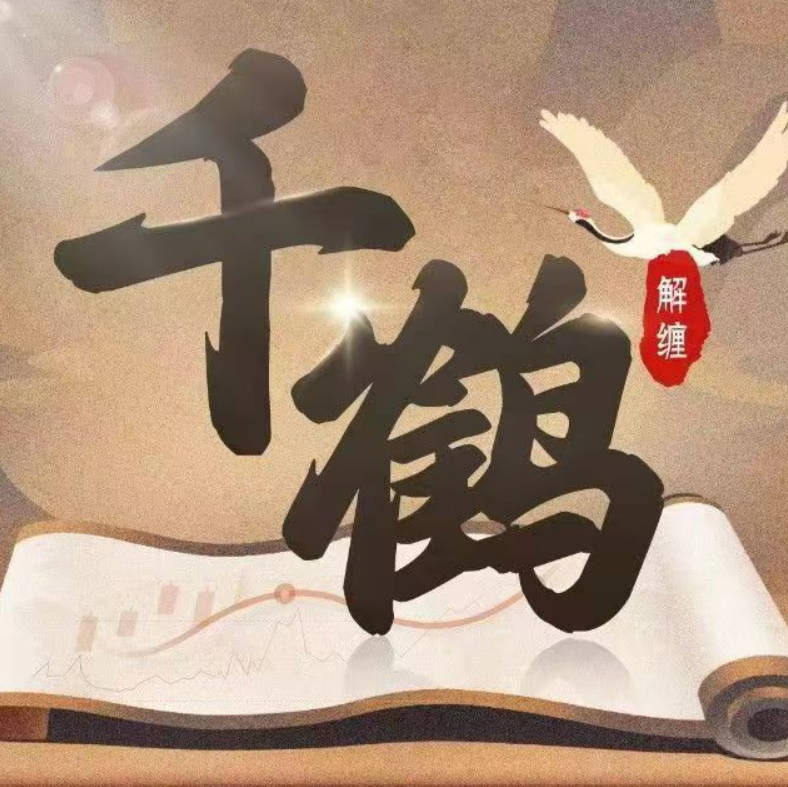 千鹤
解缠